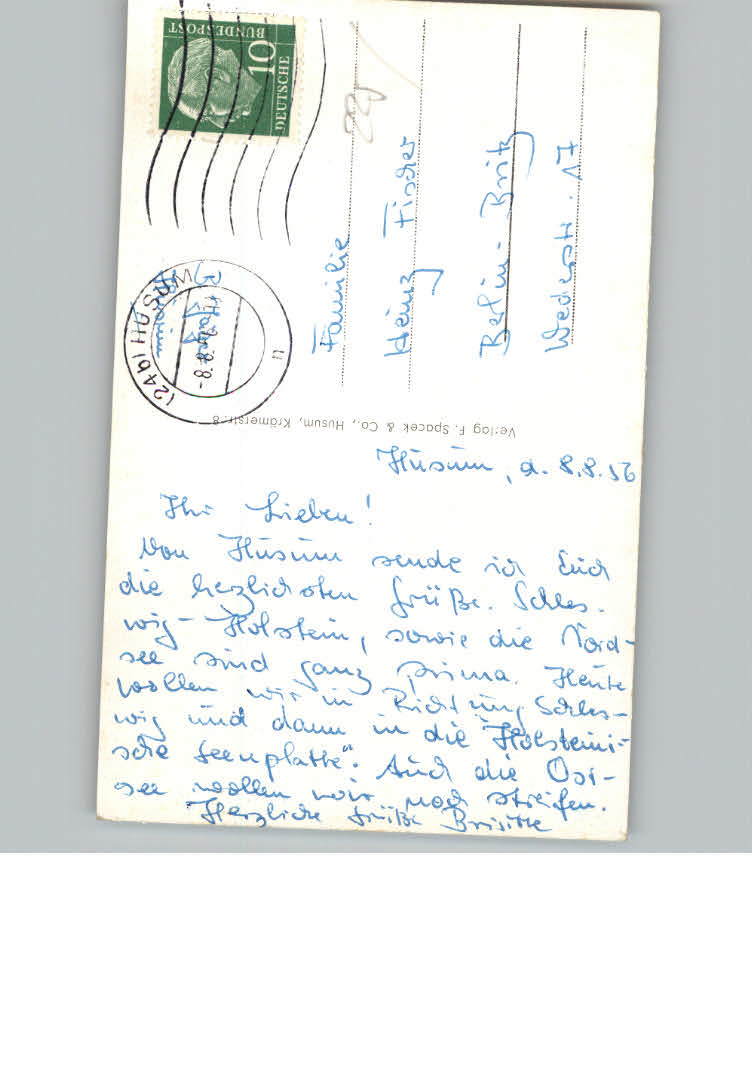 DEUTSCHE
BUNDESPOST
10
(24b) HUSUM
-8.8.
Husum
Familie
Heinz Fischer
Berlin - Britz
Wederstr. 17
Verlag F. Spacek & Co., Husum, Krämerstr. 8
Husum, d. 8.8.56
Ihr Lieben!
Von Husum sende ich Euch
die herzlichsten Grüße. Schles-
wig-Holstein, sowie die Nord-
see sind ganz prima. Heute
wollen wir in Richtung Schles-
wig und dann in die "Holsteini-
sche Seenplatte". Auch die Ost-
see wollen wir noch streifen.
Herzliche Grüße Brigitte